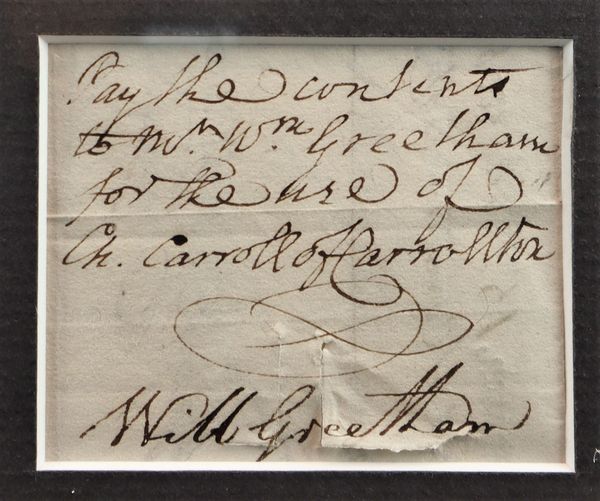 Pay the contents
to Mr. Wm Greetham
for the use of
Ch. Carroll of Carrollton
Will Greetham